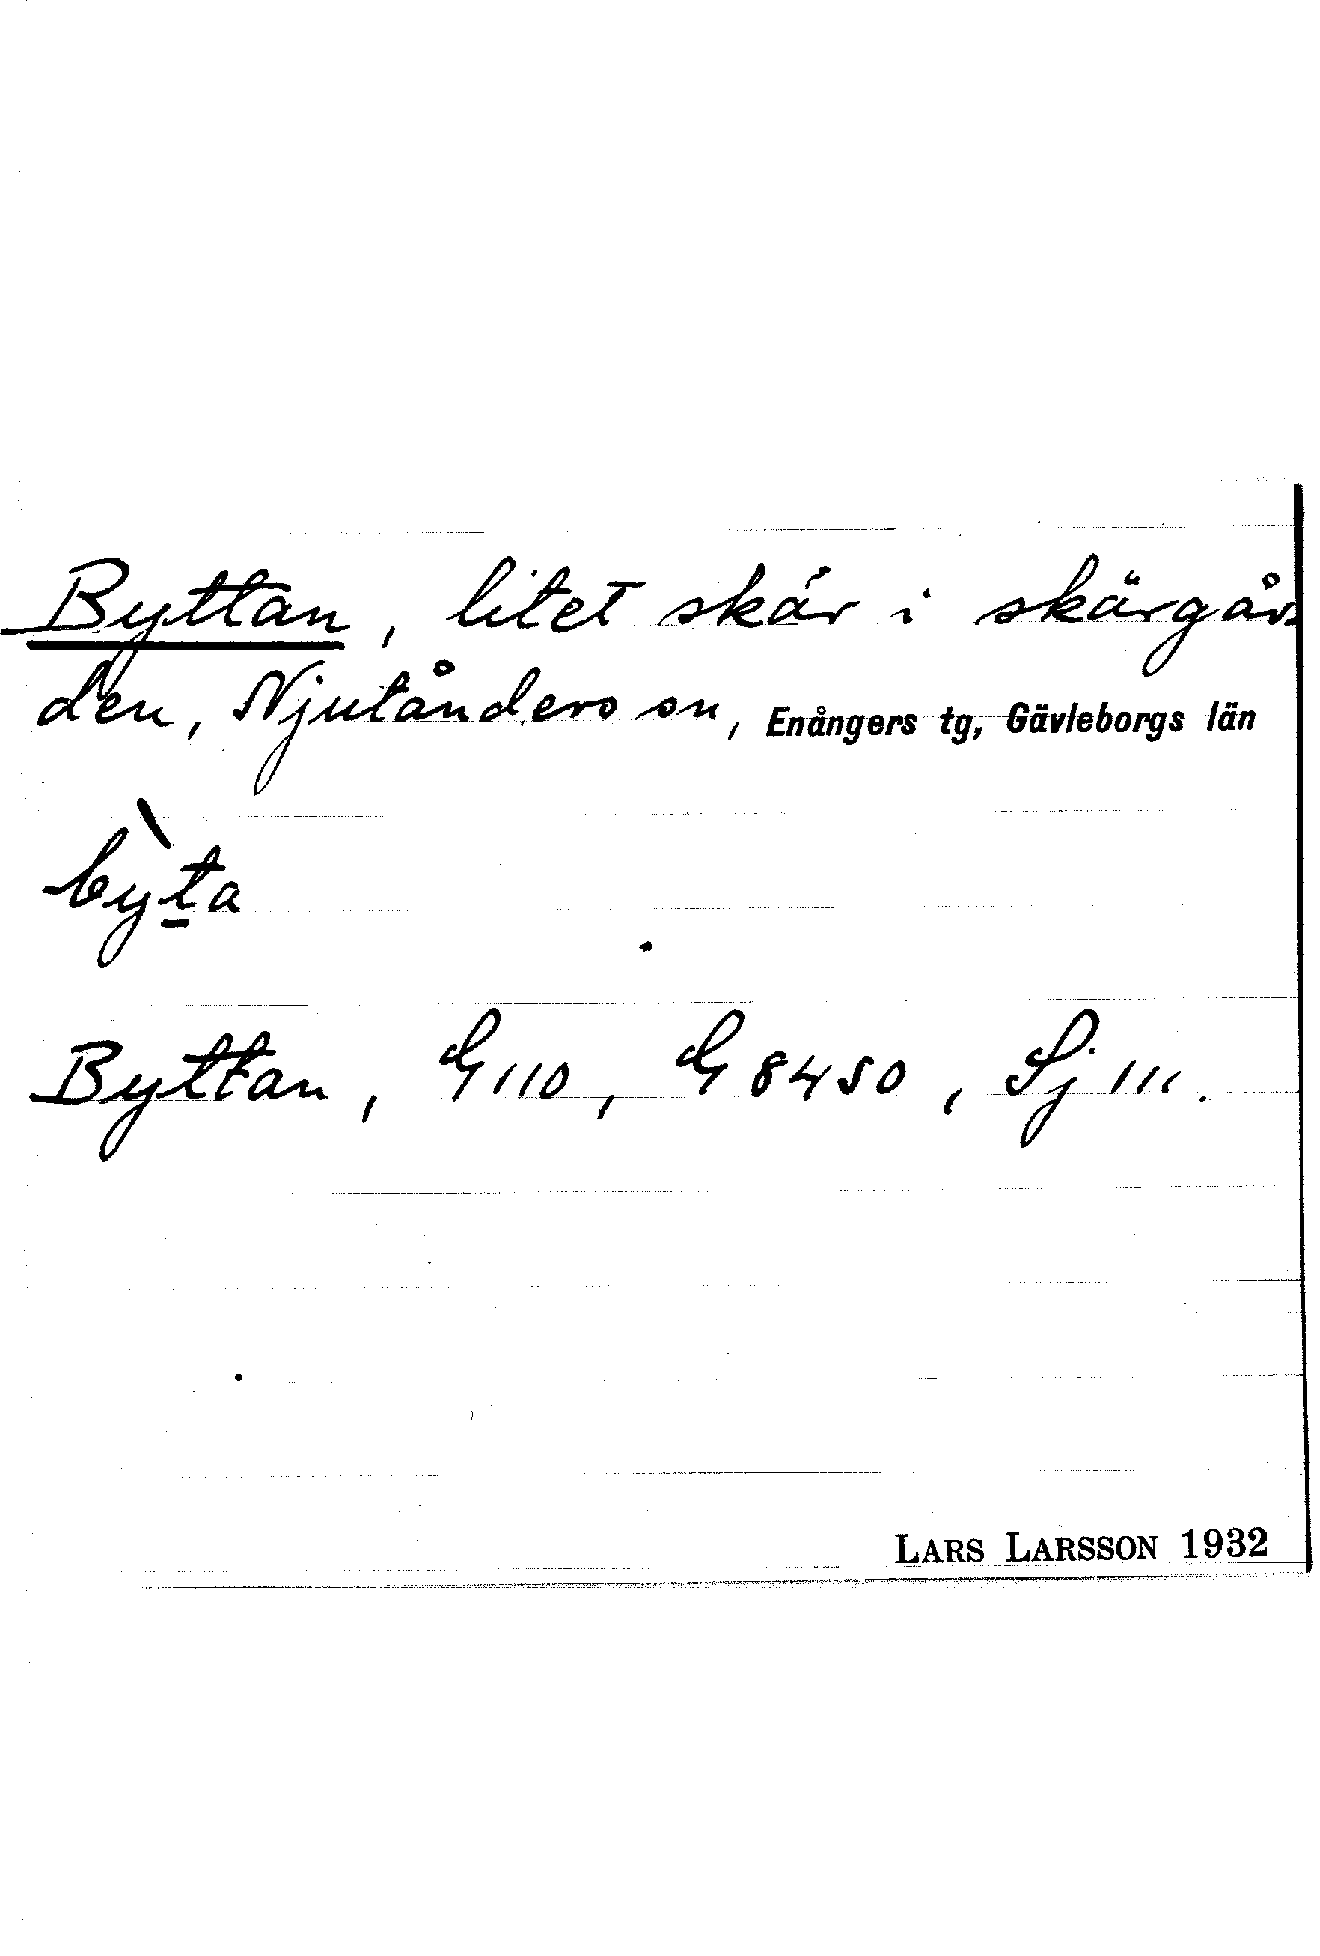 Byttan, litet skär i skärgår-
den, Njutånders sn, Enångers tg, Gävleborgs län
bỳṯa
Byttan, G 110, G 8450, Sj 111.
LARS LARSSON 1932